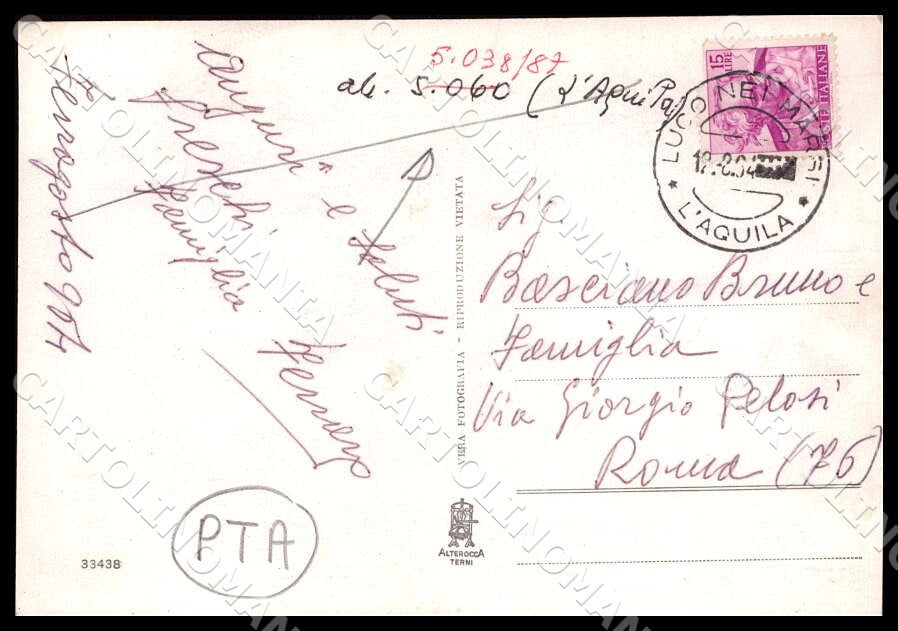 5.038/87
ak. 5.060 (L'Aquila)
Ferragosto 964
Auguri e saluti
Freschi
Famiglia
15 LIRE
POSTE ITALIANE
LUCO NEI MARSI
L'AQUILA
VERA FOTOGRAFIA - RIPRODUZIONE VIETATA
Sig.
Basciano Bruno e
Famiglia
Via Giorgio Pelosi
Roma (76)
PTA
33438
ALTEROCCA
TERNI
CARTOLINOMANIA